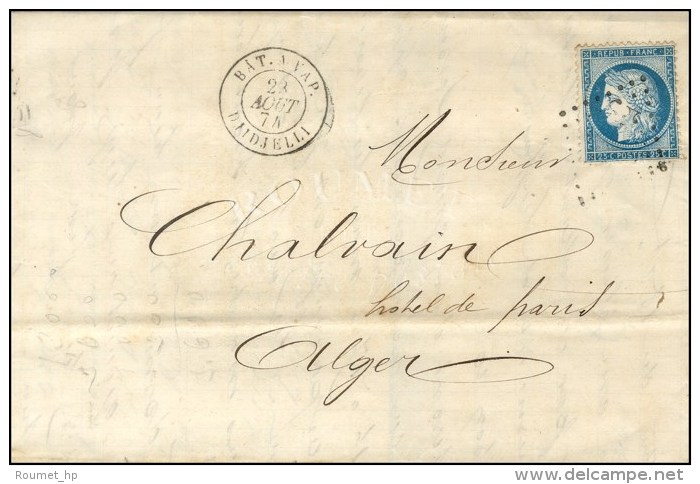 BAT. A VAP.
23
AOUT
74
DJIDJELLI
REPUB · FRANC ·
25 C POSTES 25 C
Monsieur
Chalvain
hôtel de paris
Alger
Roumet_hp
delcampe.net